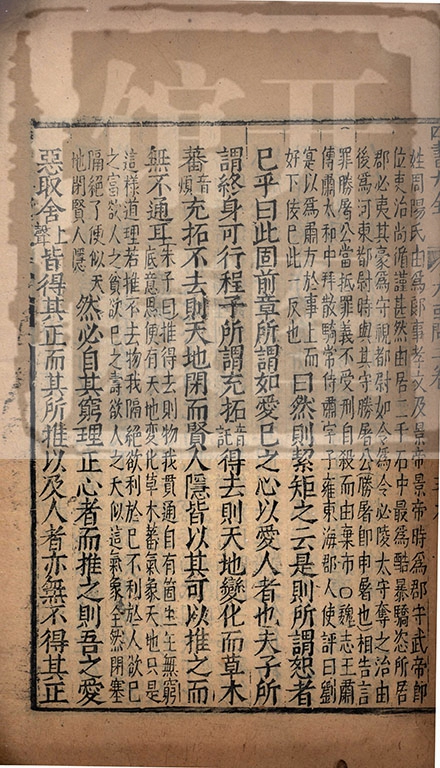 姓周陽氏由爲郎事孝文及景帝景帝時爲郡守武帝卽
位吏治尚循謹甚然由居二千石中最爲酷暴驕恣所居
郡必夷其豪爲守視都尉如令爲令必陵太守奪之治由
後爲河東都尉時與其守勝屠公勝屠卽申屠也相告言
罪勝屠公當抵罪義不受刑自殺而由棄市○魏志王肅
傳肅太和中拜散騎常侍肅字子雍東海郡人使評曰劉
寔以爲肅方於事上而
好下佞已此一反也
曰然則絜矩之云是則所謂恕者
已乎曰此固前章所謂如愛己之心以愛人者也夫子所
謂終身可行程子所謂充拓音託得去則天地變化而草木
蕃音煩充拓不去則天地閉而賢人隱皆以其可以推之而
無不通耳
朱子曰推得去則物我貫通自有箇生生無窮
底意思便有天地變化草木蕃氣象天地只是
這樣道理若推不去物我隔絶欲利於己不利於人欲己
之富欲人之貧欲己之壽欲人之夭似這氣象全然閉塞
隔絶了便似天
地閉賢人隱
然必自其窮理正心者而推之則吾之愛
惡取舍上聲皆得其正而其所推以及人者亦無不得其正